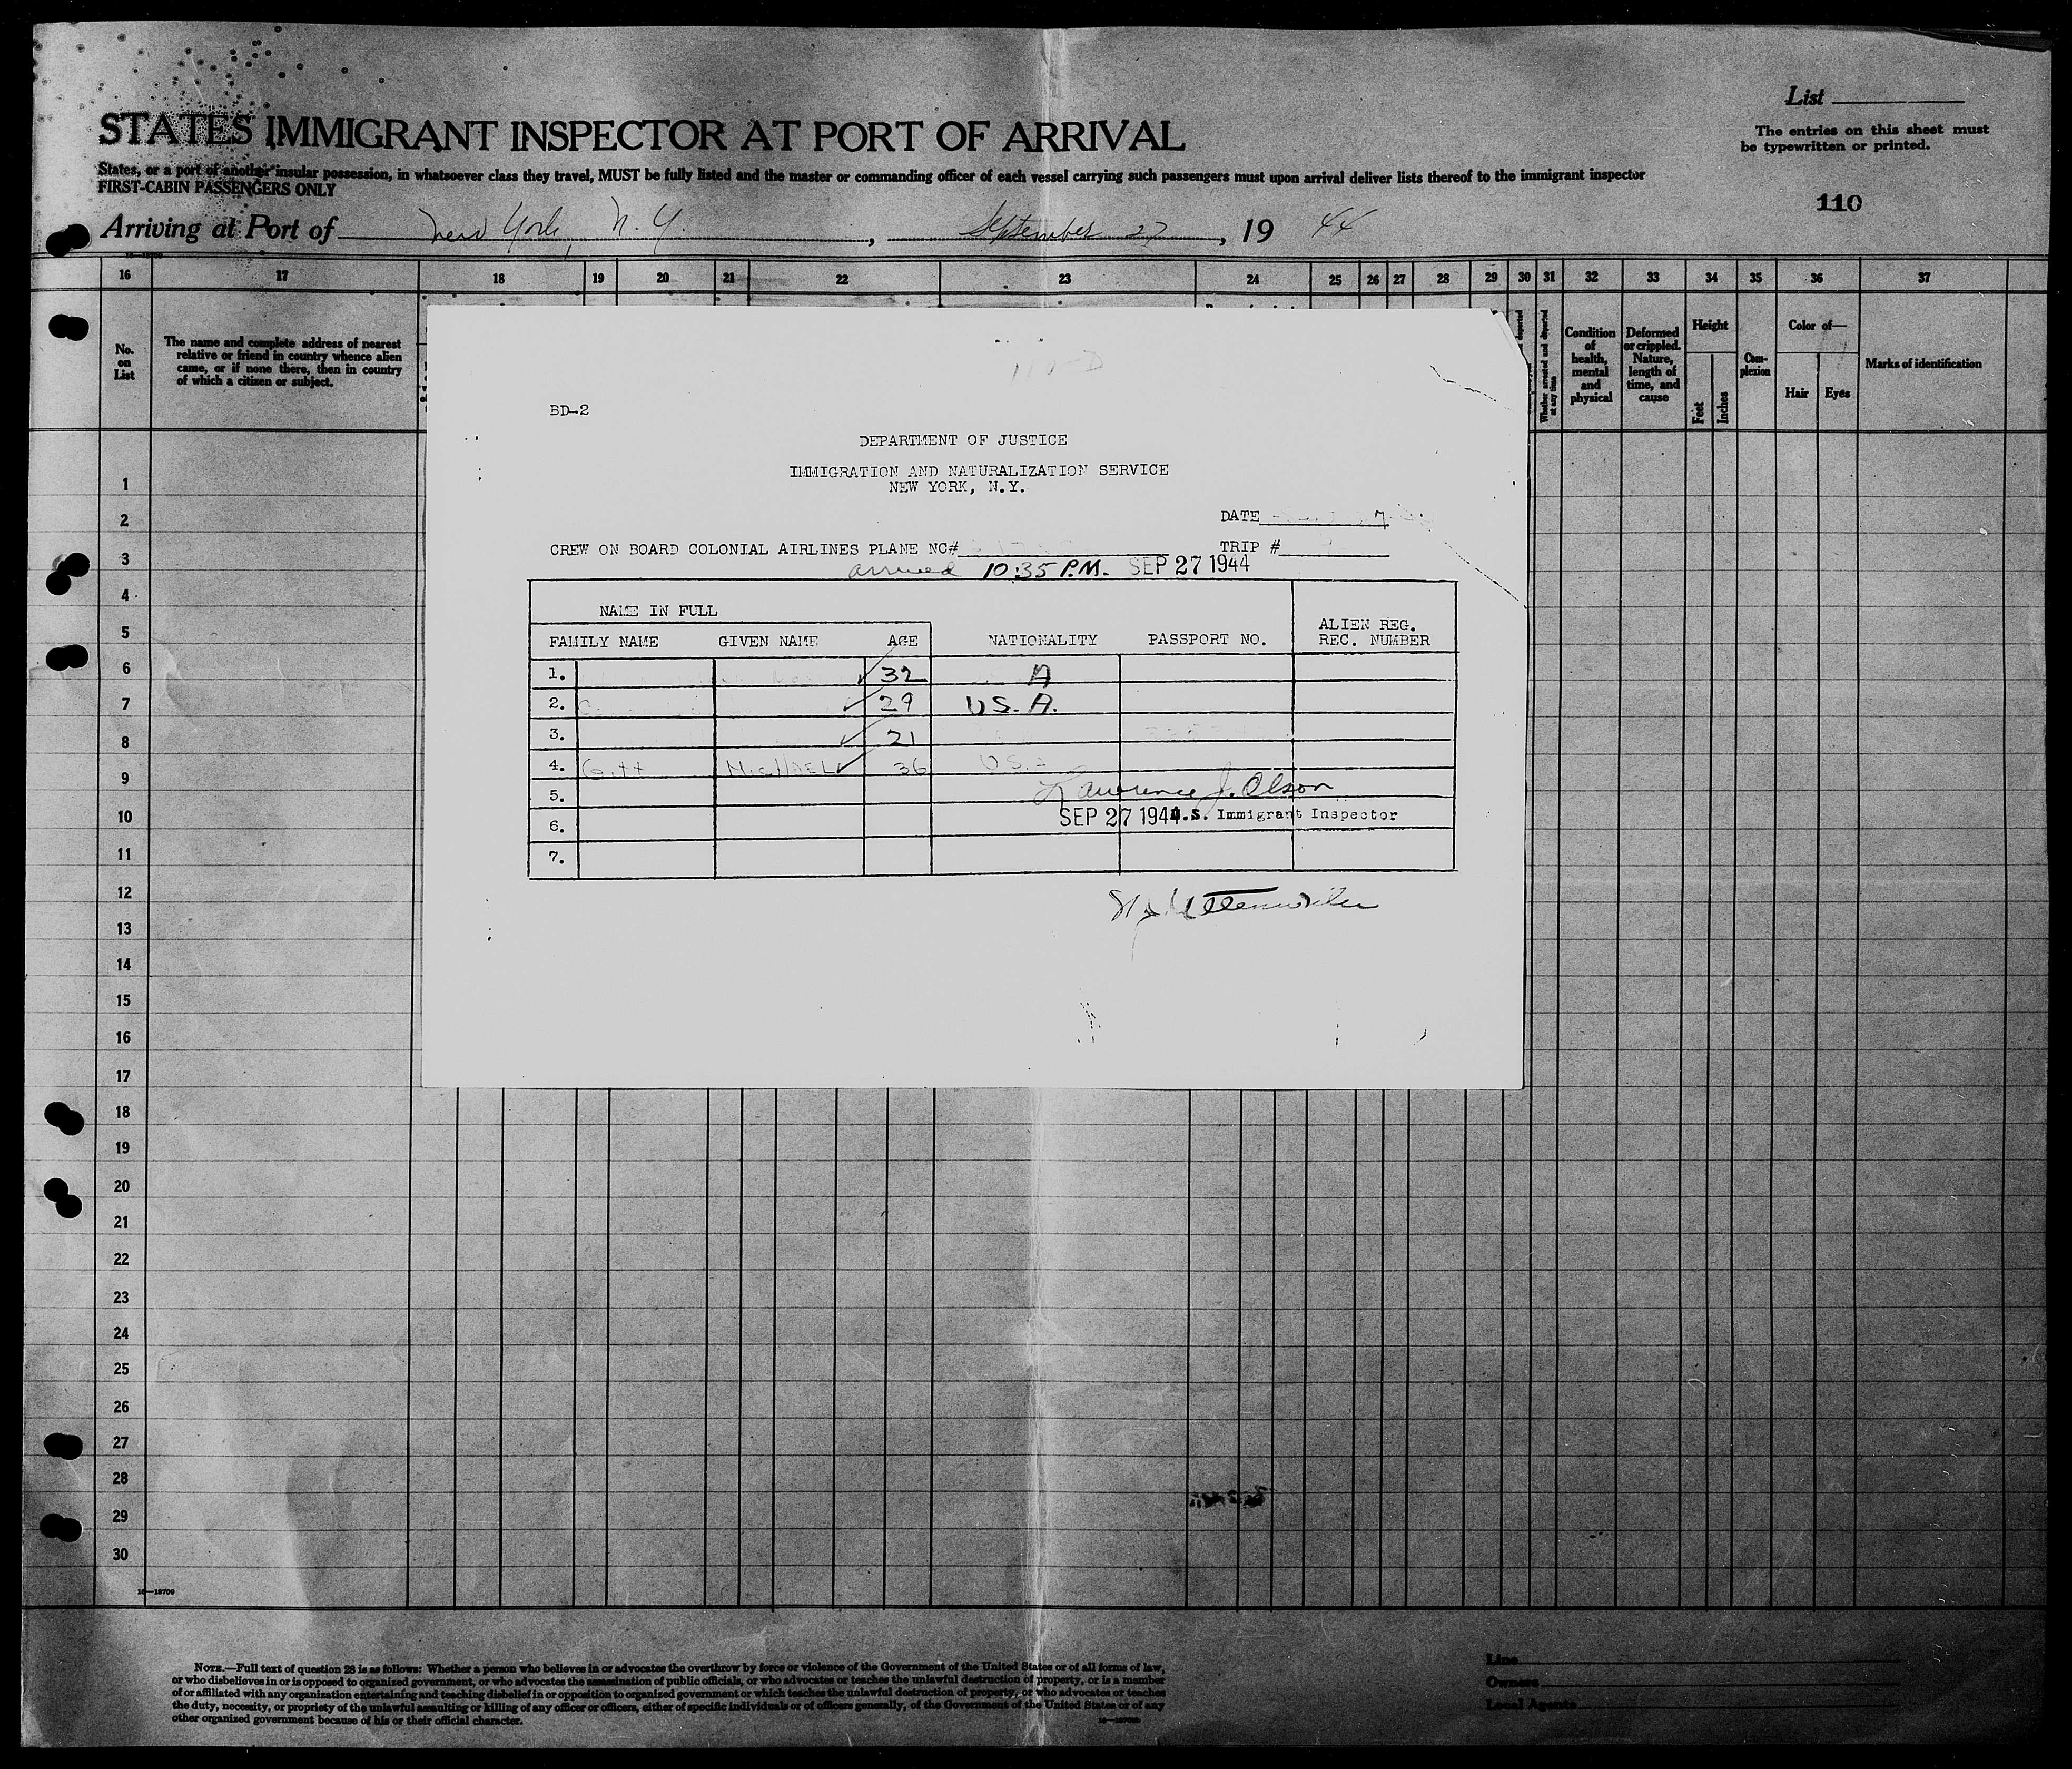 List
STATES IMMIGRANT INSPECTOR AT PORT OF ARRIVAL
The entries on this sheet must
be typewritten or printed.
States, or a port of another insular possession, in whatsoever class they travel, MUST be fully listed and the master or commanding officer of each vessel carrying such passengers must upon arrival deliver lists thereof to the immigrant inspector
FIRST-CABIN PASSENGERS ONLY
110
Arriving at Port of New York, N.Y. , September 27 , 19 44
16 17 18 19 20 21 22 23 24 25 26 27 28 29 30 31 32 33 34 35 36 37
No.
on
List
The name and complete address of nearest
relative or friend in country whence alien
came, or if none there, then in country
of which a citizen or subject.
Whether arrested and deported
at any time
Condition
of
health,
mental
and
physical
Deformed
or crippled.
Nature,
length of
time, and
cause
Height
Feet
Inches
Com-
plexion
Color of—
Hair Eyes
Marks of identification
BD-2
DEPARTMENT OF JUSTICE
IMMIGRATION AND NATURALIZATION SERVICE
NEW YORK, N.Y.
DATE 7
CREW ON BOARD COLONIAL AIRLINES PLANE NC# TRIP #
arrived 10:35 P.M. SEP 27 1944
NAME IN FULL
FAMILY NAME GIVEN NAME AGE NATIONALITY PASSPORT NO. ALIEN REG.
REC. NUMBER
1. 32 A
2. 29 U.S.A.
3. 21
4. Gitt MICHAEL 36 U.S.A
5. Lawrence J. Olson
6. SEP 27 1944 U.S. Immigrant Inspector
7.
1
2
3
4
5
6
7
8
9
10
11
12
13
14
15
16
17
18
19
20
21
22
23
24
25
26
27
28
29
30
16—18709
NOTE.—Full text of question 28 is as follows: Whether a person who believes in or advocates the overthrow by force or violence of the Government of the United States or of all forms of law,
or who disbelieves in or is opposed to organized government, or who advocates the assassination of public officials, or who advocates or teaches the unlawful destruction of property, or is a member
of or affiliated with any organization entertaining and teaching disbelief in or opposition to organized government or which teaches the unlawful destruction of property, or who advocates or teaches
the duty, necessity, or propriety of the unlawful assaulting or killing of any officer or officers, either of specific individuals or of officers generally, of the Government of the United States or of any
other organized government because of his or their official character.
Line
Owners
Local Agents